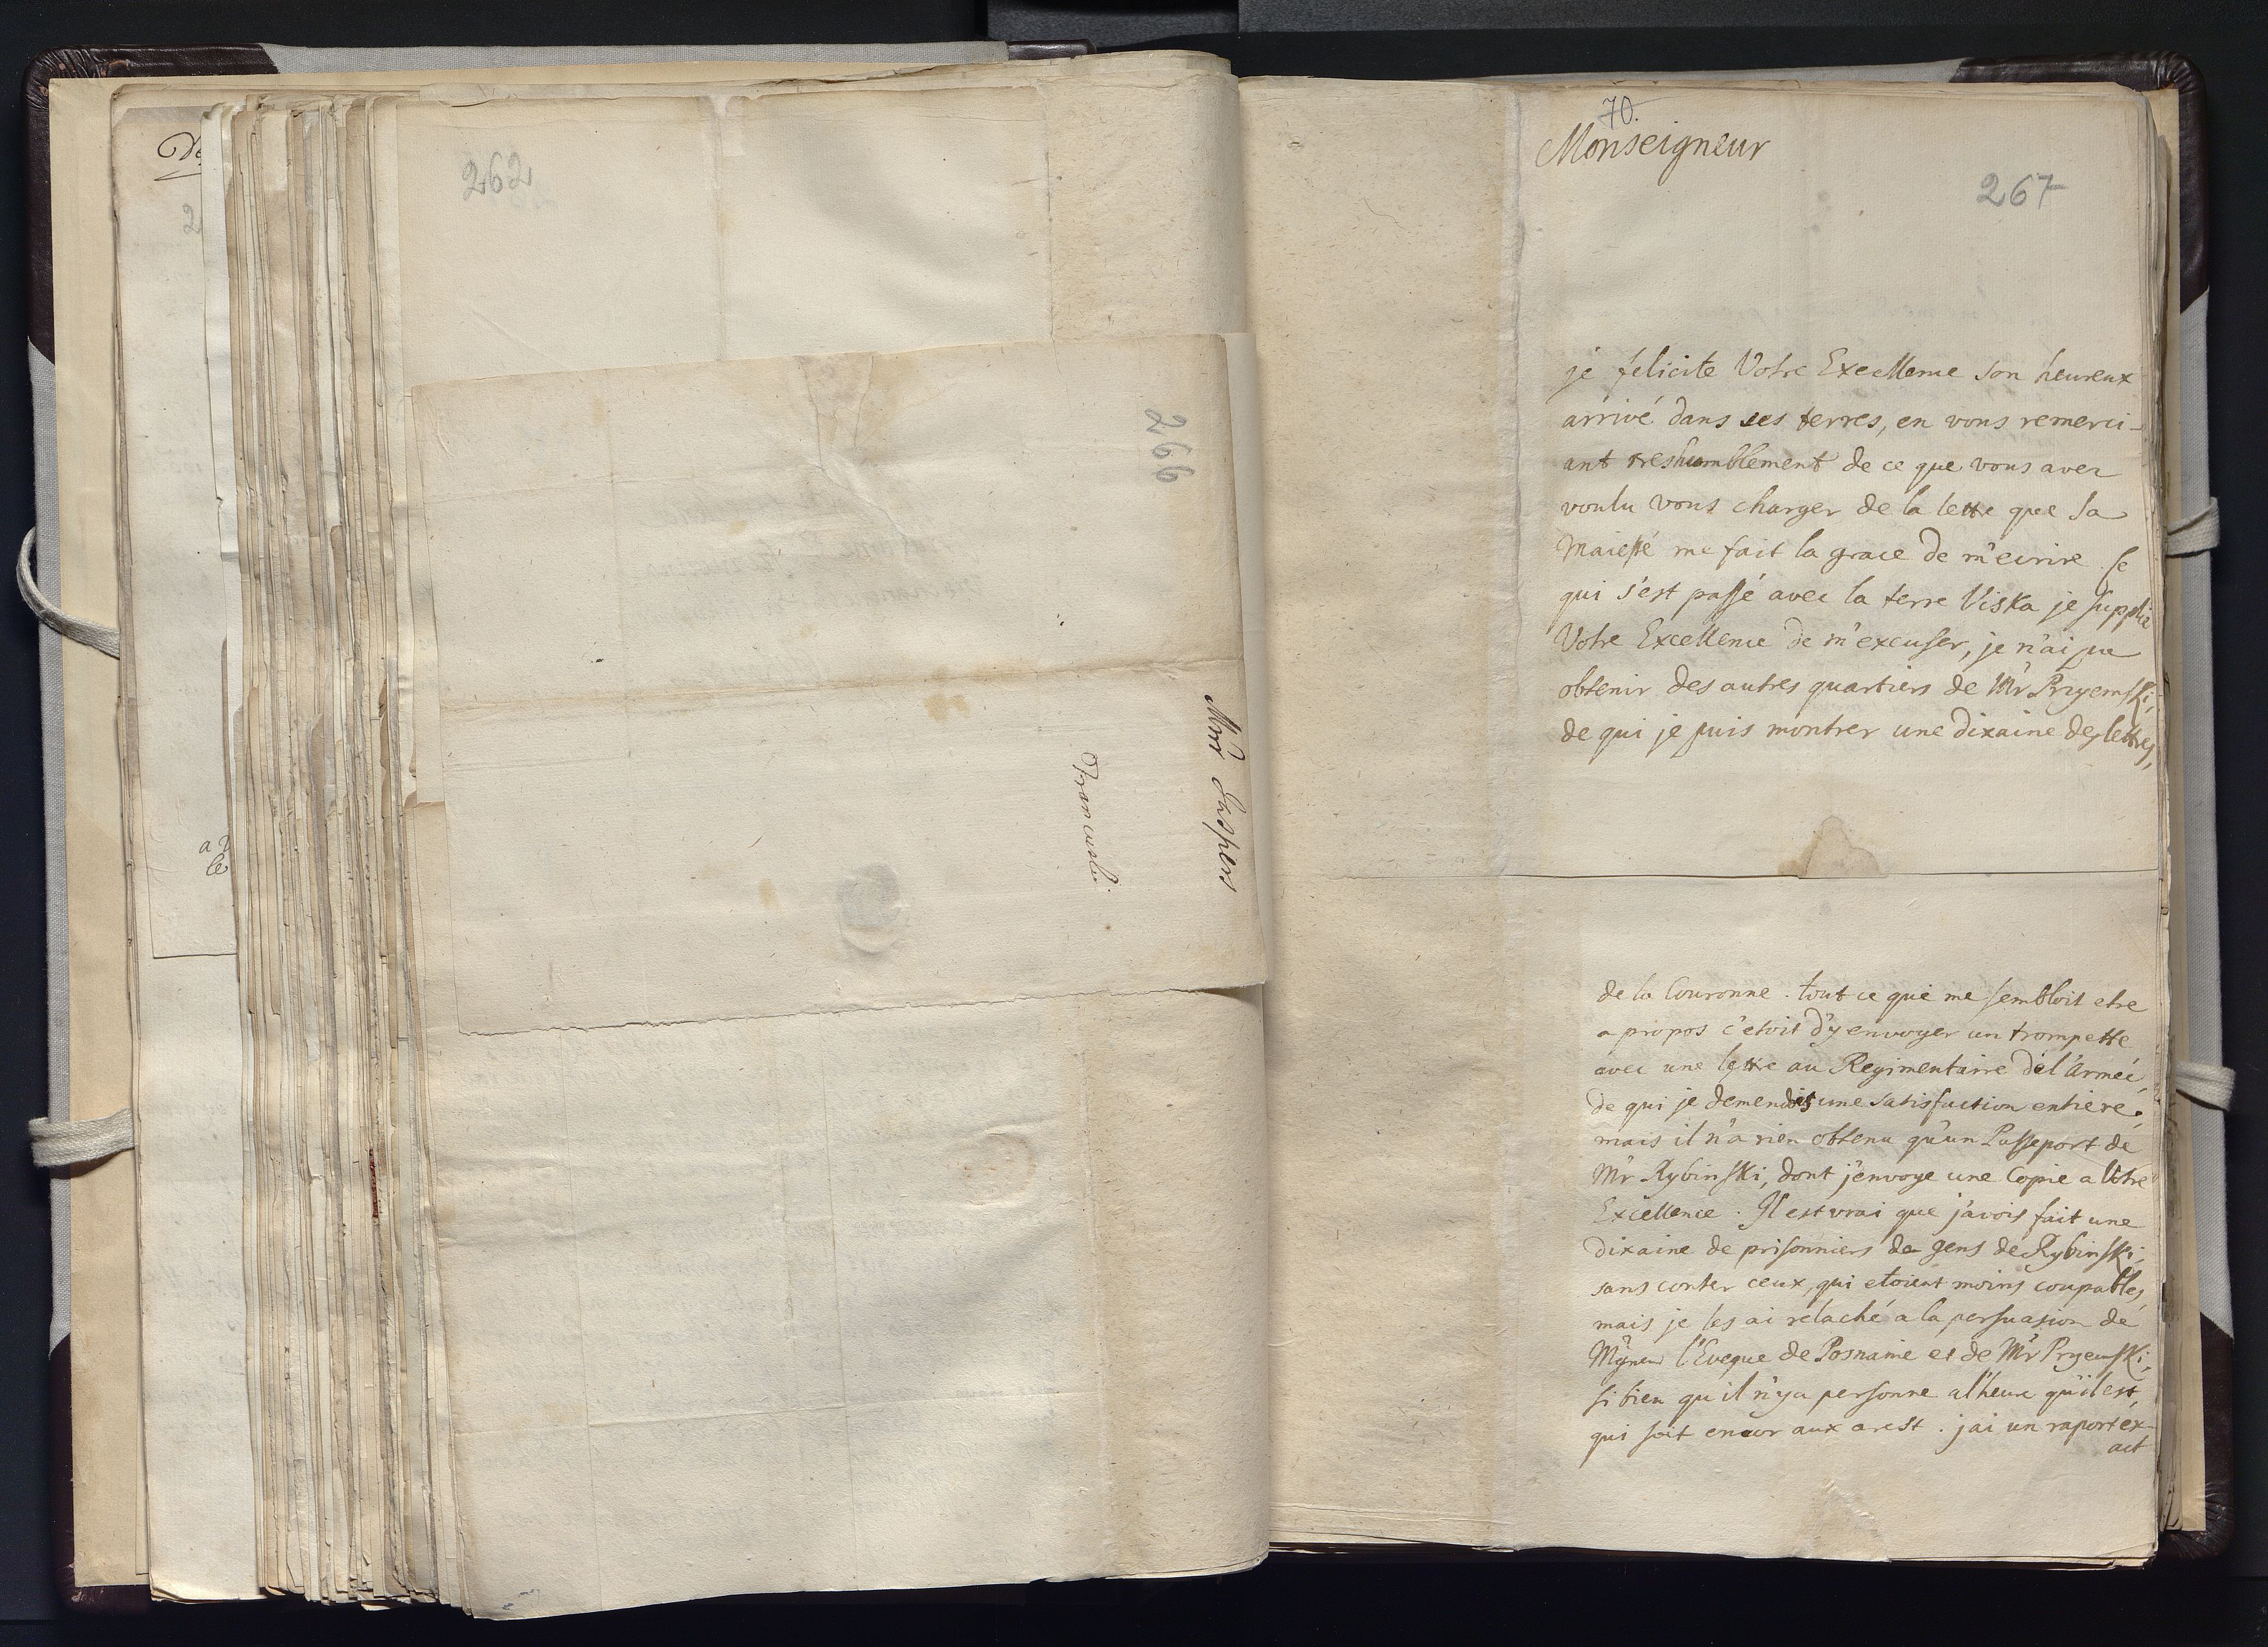 262
266
Mrr Caspers
Francuski
70.
Monseigneur
267
je felicite Votre Excellence son heureux
arrivé dans ses terres, en vous remerci-
ant treshumblement de ce que vous avez
voulu vous charger de la lettre que Sa
Majesté me fait la grace de m'ecrire. Ce
qui s'est passé avec la terre Viska je supplie
Votre Excellence de m'excuser, je n'ai pu
obtenir des autres quartiers de Mr Przyemski,
de qui je puis montrer une dixaine de lettres,
de la Couronne. tout ce que me sembloit etre
a propos c'etoit d'y envoyer un trompette
avec une lettre au Regimentaire de l'Armée,
de qui je demendois une satisfaction entiere.
mais il n'a rien obtenu qu'un Passeport de
Mr Rybinski, dont j'envoye une Copie a Votre
Excellence. Il est vrai que j'avois fait une
dixaine de prisonniers de gens de Rybinski;
sans conter ceux, qui etoient moins coupables,
mais je les ai relaché a la persuasion de
Mgneur l'Eveque de Posnanie et de Mr Pryemski,
si bien qu'il n'ya personne al'heure qu'il est,
qui soit encor aux arest. j'ai un raport ex-
act